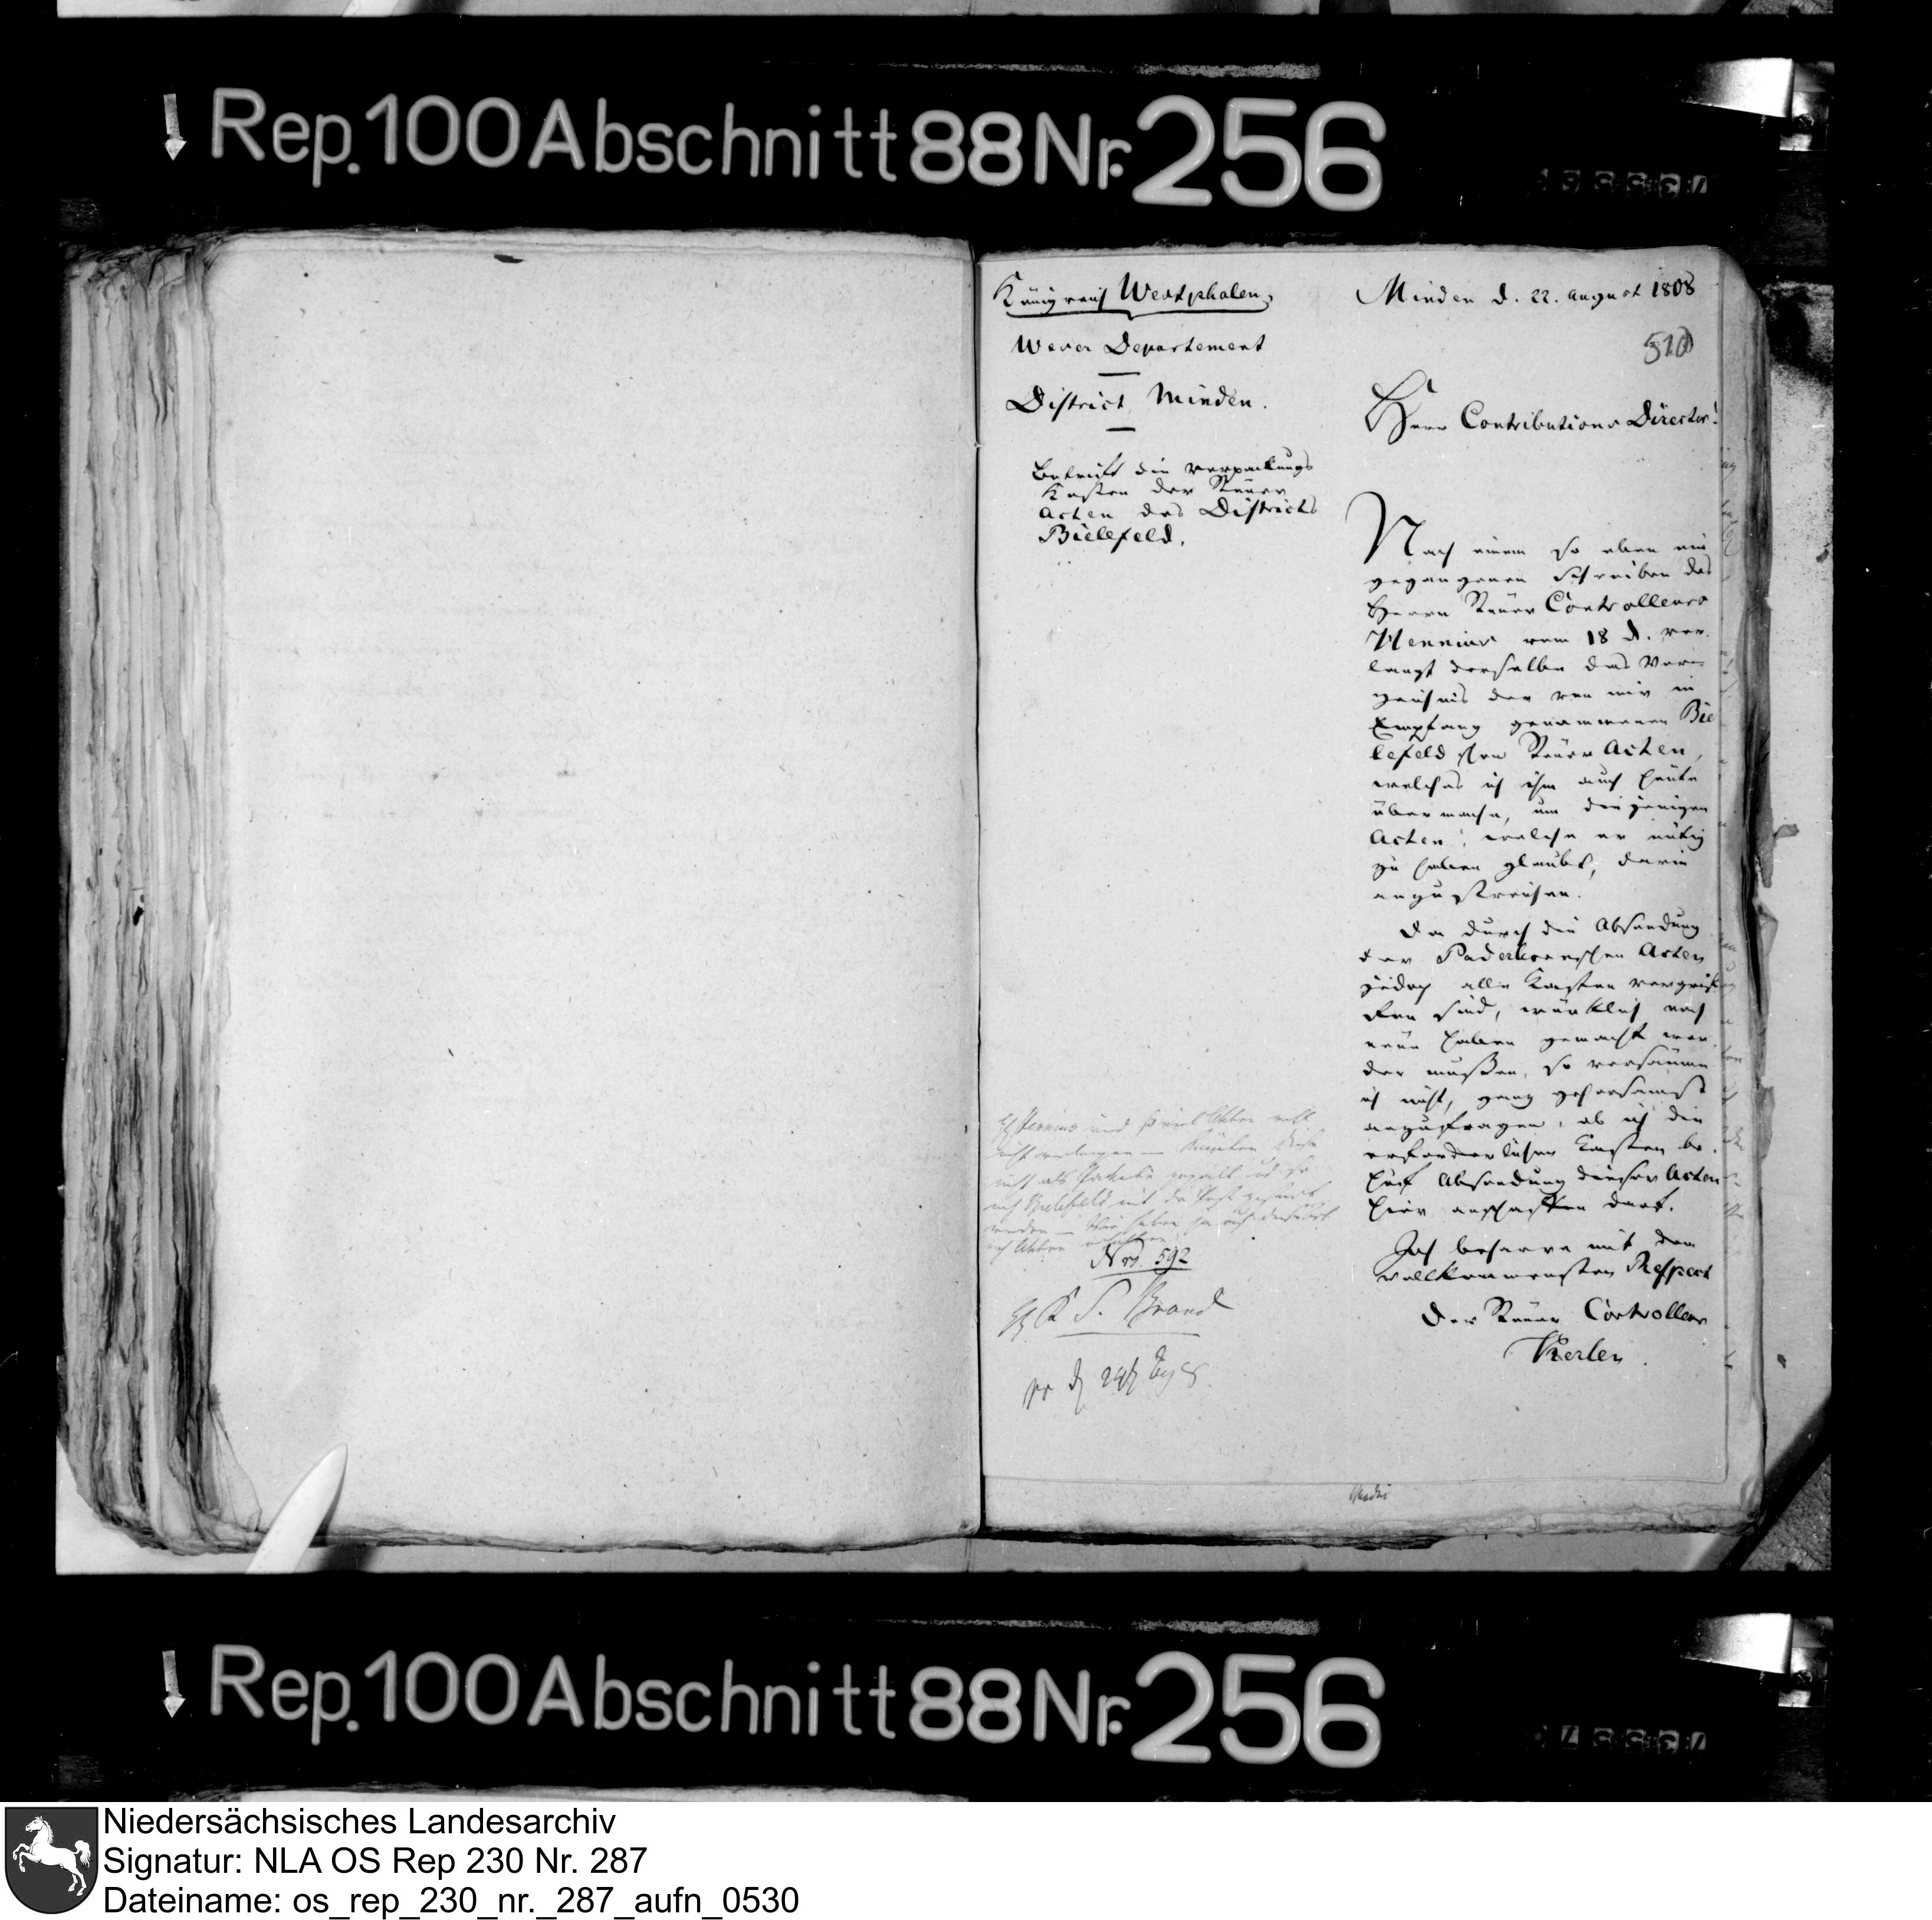 Rep. 100 Abschnitt 88 Nr. 256
Königreich Westphalen,
Weser Departement
District Minden.
Betrift die Verpackungs
Kasten der Steuer
Acten des Districts
Bielefeld.
Minden d. 22. August 1808
510
Herr Contributions Director!
Nach einem so eben ein
gegangenen Schreiben des
Herrn Steuer Controlleurs
Mennius vom 18 d. ver
langt derselbe das Verz
eichnis der von mir in
Empfang genommenen Bie
lefeldschen Steuer Acten,
welches ich ihm auch heute
übermache, um diejenigen
Acten, welche er nötig
zu haben glaubt, darin
anzustreichen.
Da durch die Absendung
der Paderbornschen Acten
jedoch alle Kasten vergrif
fen sind, würklich noch
neue haben gemacht wer
den mußen, so versäume
ich nicht, ganz gehorsamst
anzufragen, ob ich die
erforderlichen Kasten be
huf Absendung dieser Acten
hier anschaffen darf.
Ich beharre mit dem
vollkommensten Respect
Der Steuer Controlleur
Kerlen.
nach Bielefeld mit der Post gesandt
werden
Nro. 592
Brand
Rep. 100 Abschnitt 88 Nr. 256
Niedersächsisches Landesarchiv
Signatur: NLA OS Rep 230 Nr. 287
Dateiname: os_rep_230_nr._287_aufn_0530